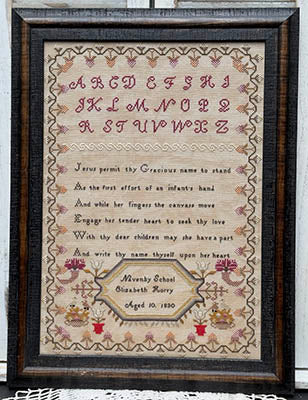 A B C D E F G H I
J K L M N O P Q
R S T U V W X Z
Jesus permit thy Gracious name to stand
As the first effort of an infant's hand
And while her fingers the canvass move
Engage her tender heart to seek thy love
With thy dear children may she have a part
And write thy name thyself upon her heart
Navenby School
Elizabeth Hurry
Aged 10. 1830